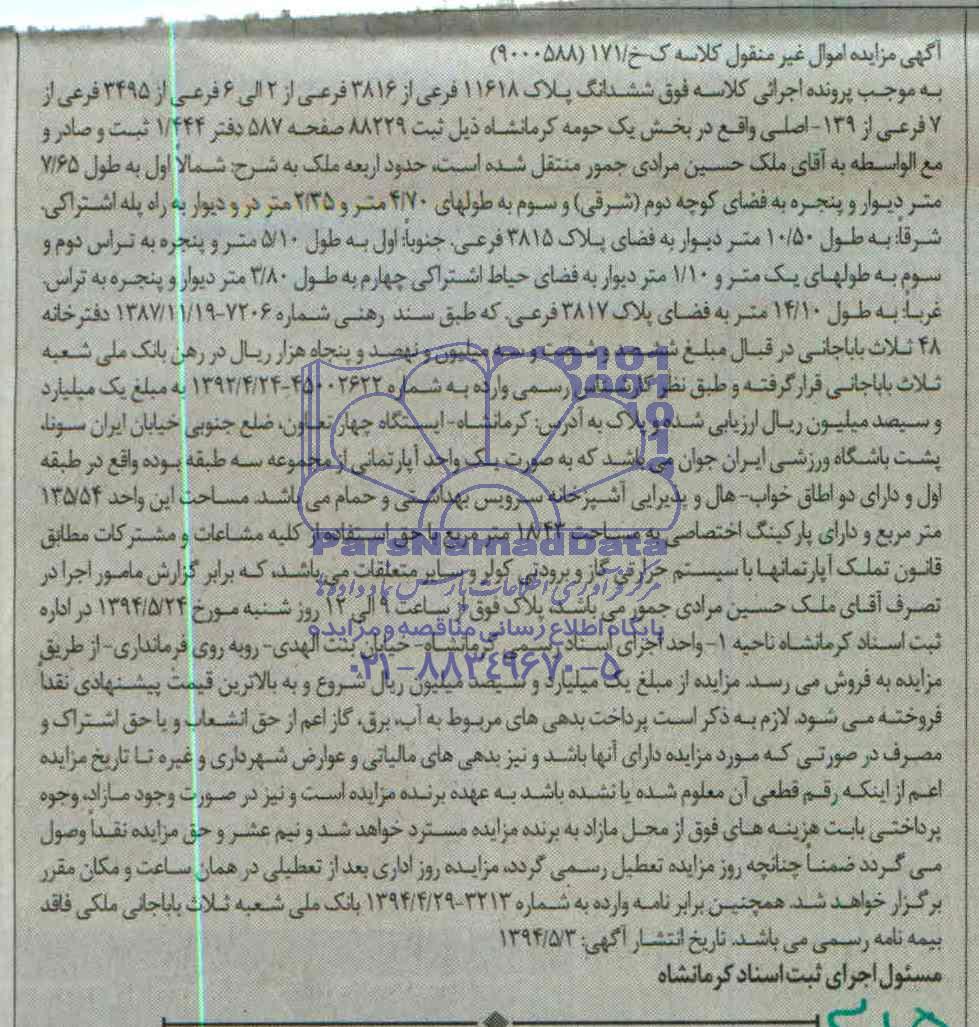 آگهی مزایده اموال غیر منقول کلاسه ک-خ/۱۷۱ (۹۰۰۰۵۸۸)
به موجب پرونده اجرائی کلاسه فوق ششدانگ پلاک ۱۱۶۱۸ فرعی از ۳۸۱۶ فرعی از ۲ الی ۶ فرعی از ۳۴۹۵ فرعی از
۷ فرعی از ۱۳۹- اصلی واقع در بخش یک حومه کرمانشاه ذیل ثبت ۸۸۲۲۹ صفحه ۵۸۷ دفتر ۱/۴۴۴ ثبت و صادر و
مع الواسطه به آقای ملک حسین مرادی جمور منتقل شده است، حدود اربعه ملک به شرح: شمالاً اول به طول ۷/۶۵
متر دیوار و پنجره به فضای کوچه دوم (شرقی) و سوم به طولهای ۴/۷۰ متر و ۲/۳۵ متر در و دیوار به راه پله اشتراکی.
شرقاً: به طول ۱۰/۵۰ متر دیوار به فضای پلاک ۳۸۱۵ فرعی. جنوباً: اول به طول ۵/۱۰ متر و پنجره به تراس دوم و
سوم به طولهای یک متر و ۱/۱۰ متر دیوار به فضای حیاط اشتراکی چهارم به طول ۳/۸۰ متر دیوار و پنجره به تراس.
غرباً: به طول ۱۴/۱۰ متر به فضای پلاک ۳۸۱۷ فرعی. که طبق سند رهنی شماره ۷۲۰۶-۱۳۸۷/۱۱/۱۹ دفترخانه
۴۸ ثلاث باباجانی در قبال مبلغ ششصد و شصت و سه میلیون و نهصد و پنجاه هزار ریال در رهن بانک ملی شعبه
ثلاث باباجانی قرار گرفته و طبق نظر کارشناس رسمی وارده به شماره ۴۵۰۰۲۶۲۲-۱۳۹۲/۴/۲۴ به مبلغ یک میلیارد
و سیصد میلیون ریال ارزیابی شده و پلاک به آدرس: کرمانشاه- ایستگاه چهار تعاون، ضلع جنوبی خیابان ایران سونا،
پشت باشگاه ورزشی ایران جوان می باشد که به صورت یک واحد آپارتمانی از مجموعه سه طبقه بوده واقع در طبقه
اول و دارای دو اطاق خواب- هال و پذیرایی آشپزخانه سرویس بهداشتی و حمام می باشد. مساحت این واحد ۱۳۵/۵۴
متر مربع و دارای پارکینگ اختصاصی به مساحت ۱۸/۴۳ متر مربع با حق استفاده از کلیه مشاعات و مشترکات مطابق
قانون تملک آپارتمانها با سیستم حرارتی گاز و برودتی کولر و سایر متعلقات می باشد، که برابر گزارش مامور اجرا در
تصرف آقای ملک حسین مرادی جمور می باشد. پلاک فوق از ساعت ۹ الی ۱۲ روز شنبه مورخ ۱۳۹۴/۵/۲۴ در اداره
ثبت اسناد کرمانشاه ناحیه ۱- واحد اجرای اسناد رسمی کرمانشاه- خیابان بنت الهدی- روبه روی فرمانداری- از طریق
مزایده به فروش می رسد. مزایده از مبلغ یک میلیارد و سیصد میلیون ریال شروع و به بالاترین قیمت پیشنهادی نقداً
فروخته می شود. لازم به ذکر است پرداخت بدهی های مربوط به آب، برق، گاز اعم از حق انشعاب و یا حق اشتراک و
مصرف در صورتی که مورد مزایده دارای آنها باشد و نیز بدهی های مالیاتی و عوارض شهرداری و غیره تا تاریخ مزایده
اعم از اینکه رقم قطعی آن معلوم شده یا نشده باشد به عهده برنده مزایده است و نیز در صورت وجود مازاد، وجوه
پرداختی بابت هزینه های فوق از محل مازاد به برنده مزایده مسترد خواهد شد و نیم عشر و حق مزایده نقداً وصول
می گردد ضمناً چنانچه روز مزایده تعطیل رسمی گردد، مزایده روز اداری بعد از تعطیلی در همان ساعت و مکان مقرر
برگزار خواهد شد. همچنین برابر نامه وارده به شماره ۳۲۱۳-۱۳۹۴/۴/۲۹ بانک ملی شعبه ثلاث باباجانی ملکی فاقد
بیمه نامه رسمی می باشد. تاریخ انتشار آگهی: ۱۳۹۴/۵/۳
مسئول اجرای ثبت اسناد کرمانشاه
ParsNamadData
مرکز فرآوری اطلاعات پارس نماد داده ها
پایگاه اطلاع رسانی مناقصه و مزایده
۰۲۱-۸۸۳۴۹۶۷۰-۵